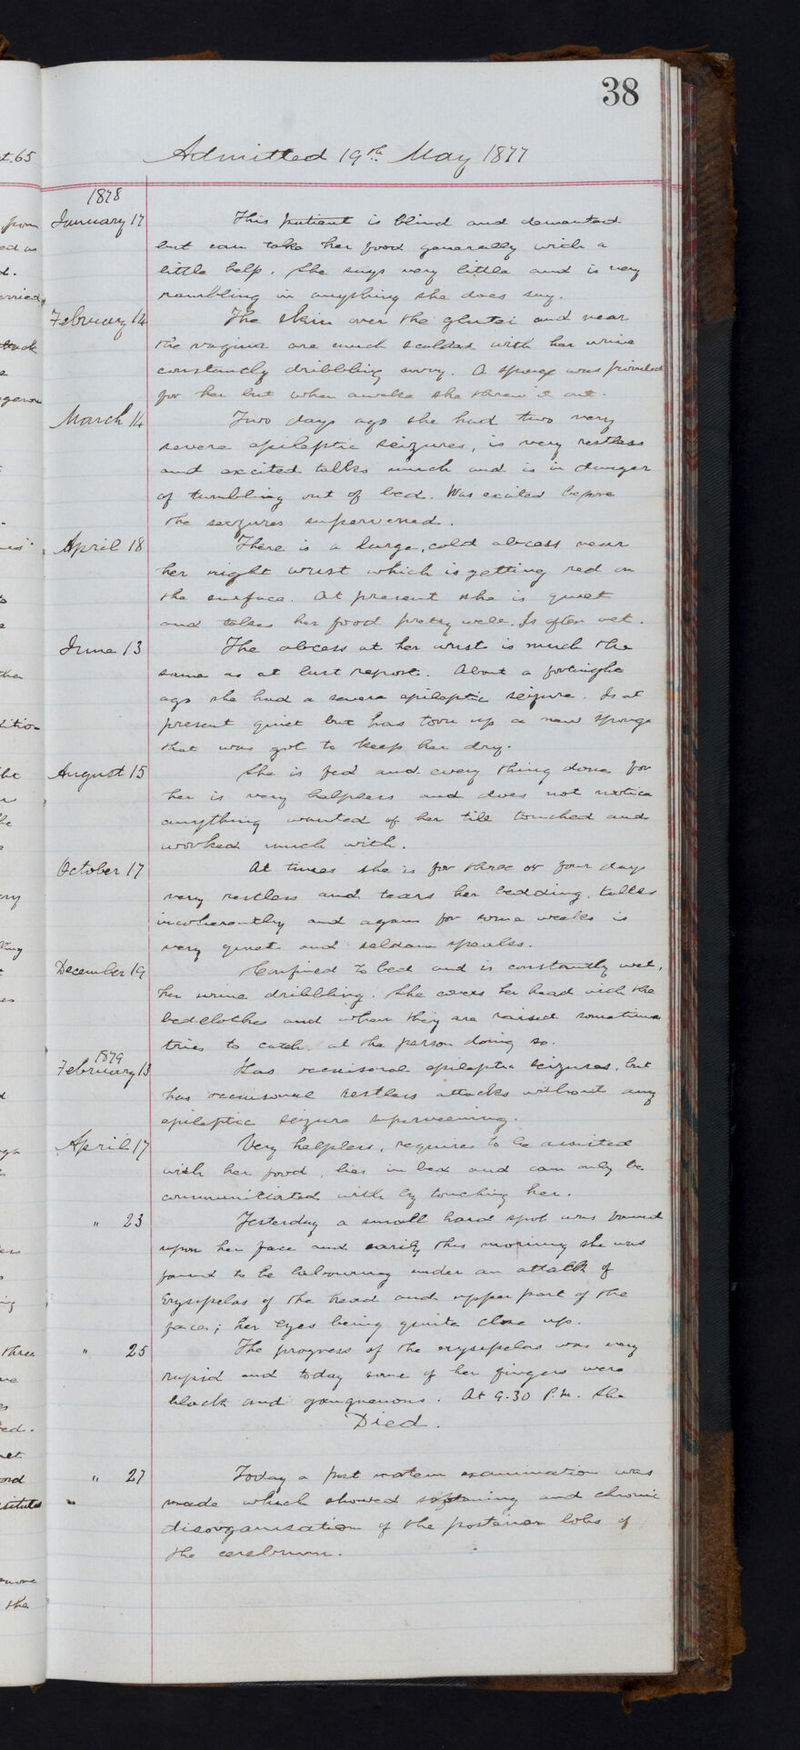 38
Admitted 19th May 1877
1878
January 17 This patient is blind and demented
but can take her food generally with a
little help. She says very little and is very
rambling in anything she does say.
February 14 The skin over the glutei and near
the vagina are much scalded with her urine
constantly dribbling away. A sponge was provided
for her but when awake she threw it out.
March 14 Two days ago she had two very
severe epileptic seizures, is very restless
and excited talks much and is in danger
of tumbling out of bed. Was excited before
the seizures supervened.
April 18 There is a large, cold abcess near
her right wrist which is getting red on
the surface. At present she is quiet
and takes her food pretty well. Is often wet.
June 13 The abcess at her wrist is much the
same as at last report. About a fortnight
ago she had a severe epileptic seizure. Is at
present quiet but has torn up a new sponge
that was got to keep her dry.
August 15 She is fed and every thing done for
her is very helpless and does not notice
anything wanted of her till touched and
worked much with.
October 17 At times she is for three or four days
very restless and tears her bedding, talks
incoherently and again for some weeks is
very quiet and seldom speaks.
December 19 Confined to bed and is constantly wet,
her urine dribbling. She covers her head with the
bedclothes and when they are raised sometimes
tries to catch at the person doing so.
1879
February 13 Has occasional epileptic seizures, but
has occasional restless attacks without any
epileptic seizure superveening.
April 17 Very helpless, requires to be assisted
with her food, lies in bed and can only be
communicated with by touching her.
" 23 Yesterday a small hard spot was found
upon her face and early this morning she was
found to be labouring under an attack of
Erysipelas of the head and upper part of the
face; her eyes being quite close up.
" 25 The progress of the erysipelas was very
rapid and today some of her fingers were
black and gangrenous. At 9.30 P.M. she
Died.
" 27 Today a post mortem examination was
made which showed softening and chronic
disorganisation of the posterior lobes of
the cerebrum.